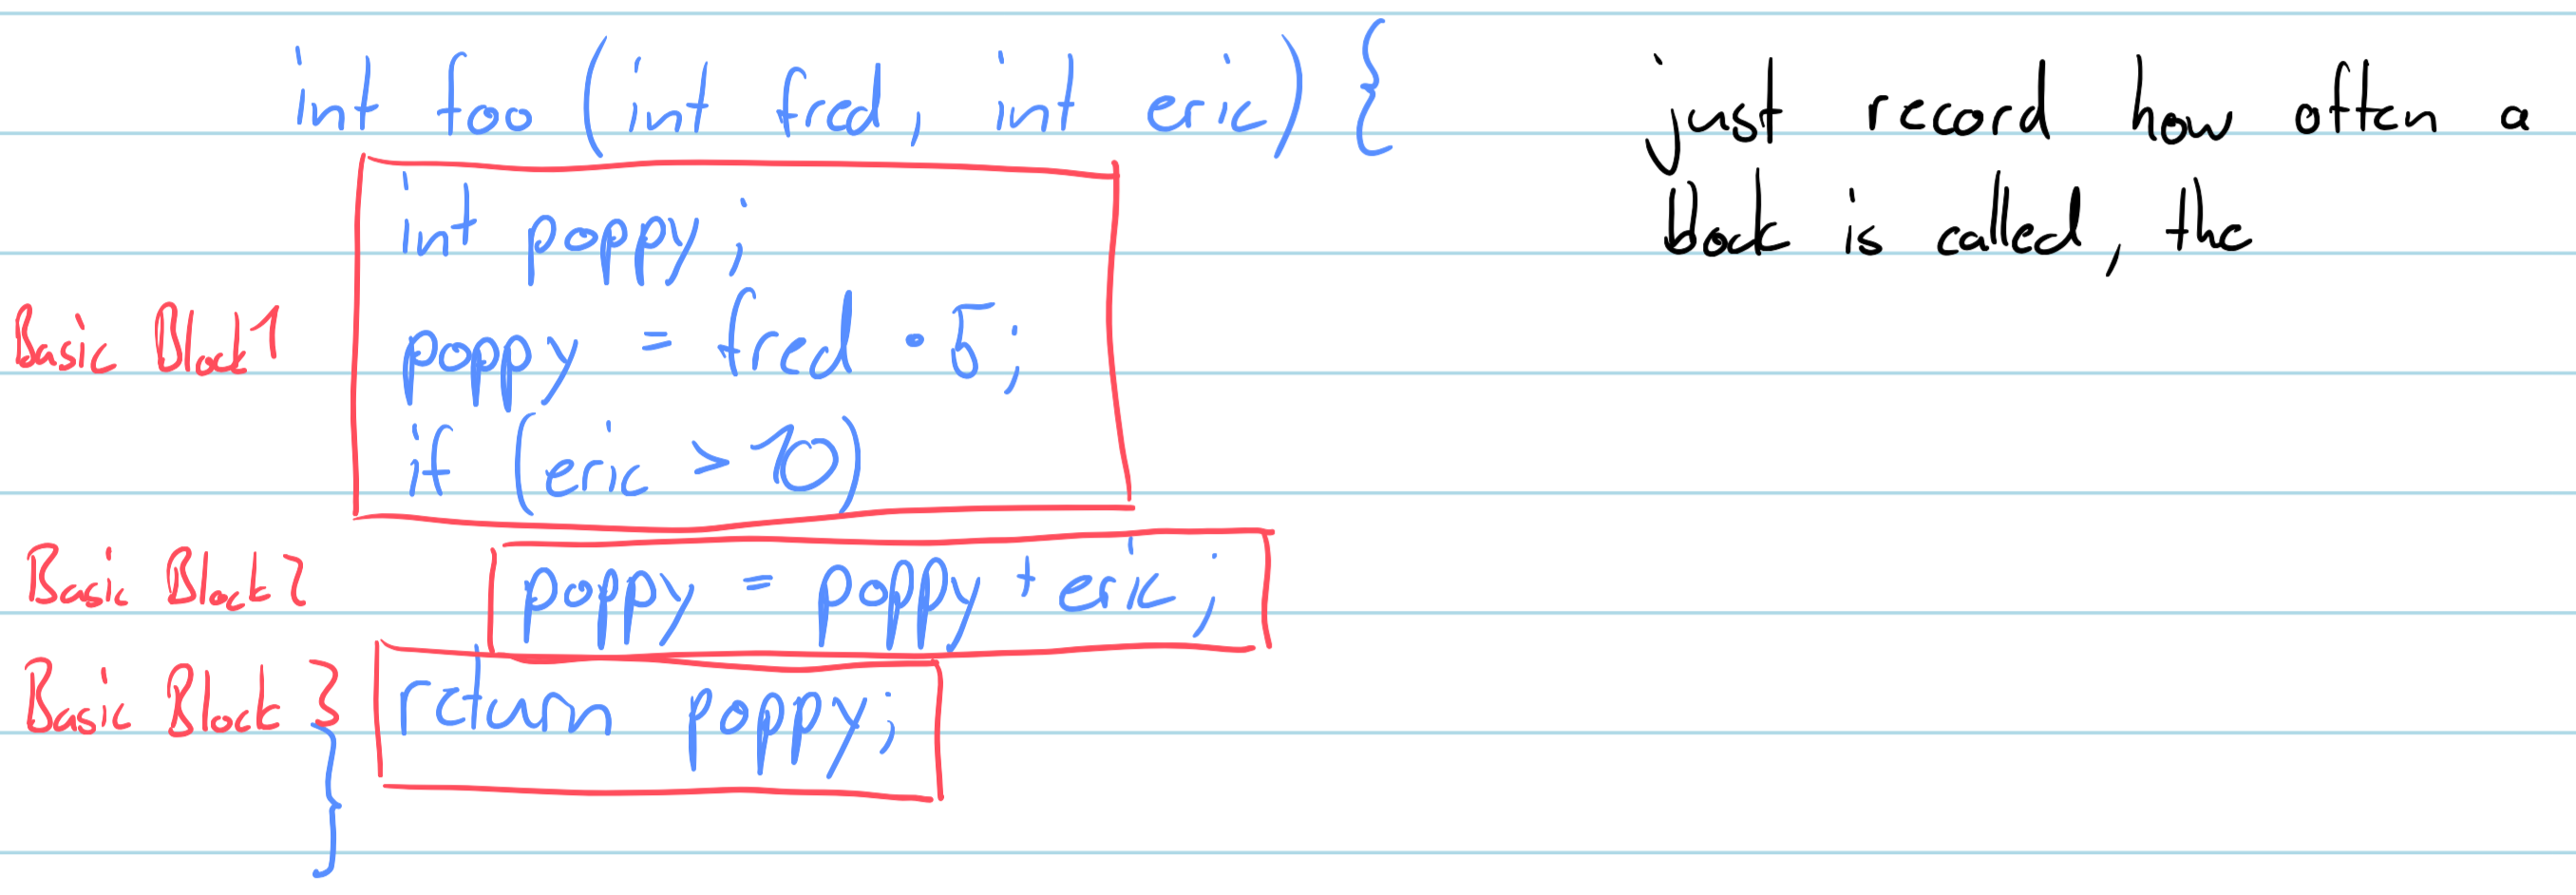 int foo (int fred, int eric) {
int poppy;
Basic Block 1
poppy = fred • 5;
if (eric > 10)
Basic Block 2
poppy = poppy + eric;
Basic Block 3
return poppy;
}
just record how often a
block is called, the